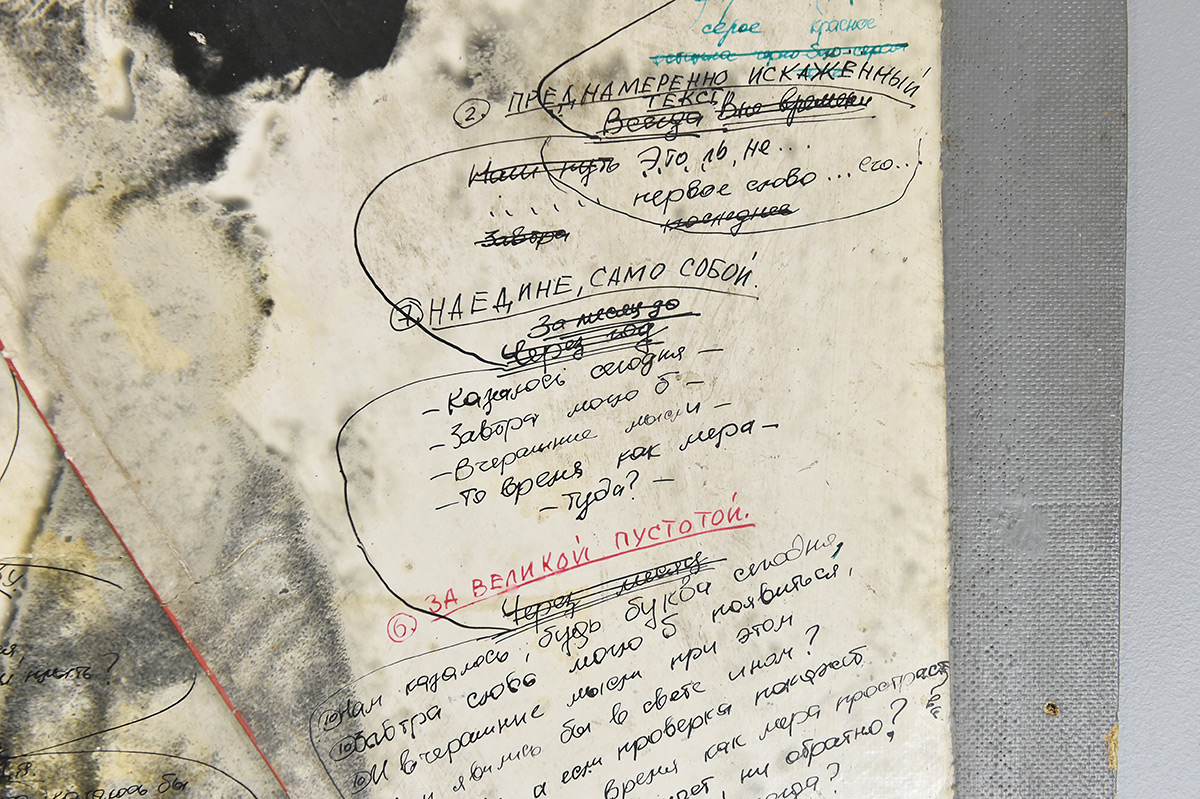 серое красное
2. ПРЕДНАМЕРЕННО ИСКАЖЕННЫЙ
ТЕКСТ
Всегда Вне времени
Наш путь Это ль, не...
первое слово ... его...
Завтра последнее
7. НАЕДИНЕ, САМО СОБОЙ.
За месяц до
Через год
– Казалось сегодня –
– Завтра могло б –
– Вчерашние мысли –
– То время как мера –
– Туда? –
6. ЗА ВЕЛИКОЙ ПУСТОТОЙ.
Через месяц
Нам казалось, будь буква сегодня,
Завтра слово могло б появиться,
И вчерашние мысли при этом
явились бы в свете ином?
а если проверка покажет
время как мера пространств
ни обратно?
казалось бы